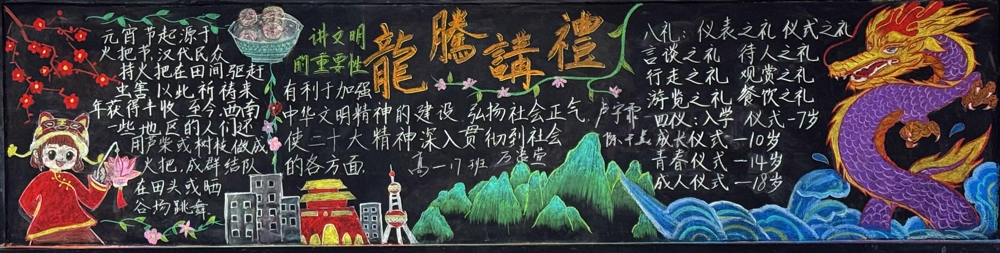 元宵节起源于
火把节,汉代民众
持火把在田间驱赶
虫害,以此祈祷来
年获得丰收,至今,西南
一些地区的人们还
用芦柴或树枝做成
火把,成群结队
在田头或晒
谷场跳舞
讲文明
的重要性
龍騰講禮
有利于加强
中华文明精神的建设,弘扬社会正气,
使二十大精神深入贯彻到社会
的各方面.
高一17班
八礼:仪表之礼 仪式之礼
言谈之礼 待人之礼
行走之礼 观赏之礼
游览之礼 餐饮之礼
四仪:入学仪式-7岁
成长仪式-10岁
青春仪式-14岁
成人仪式-18岁